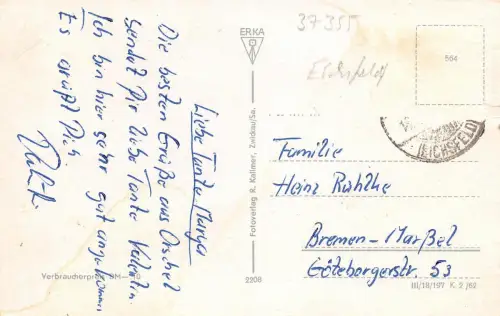 Liebe Tante Marga
Die besten Grüße aus
sendet Dir liebe Tante
Ich bin hier sehr gut angekommen
Es grüßt Dich
Verbraucherpreis DM
ERKA
Fotoverlag R. Kallmer, Zwickau/Sa.
2208
37355
Eichsfeld
564
(EICHSFELD)
Familie
Heinz
Bremen-Marßel
Göteborgerstr. 53
III/18/197 K 2/62